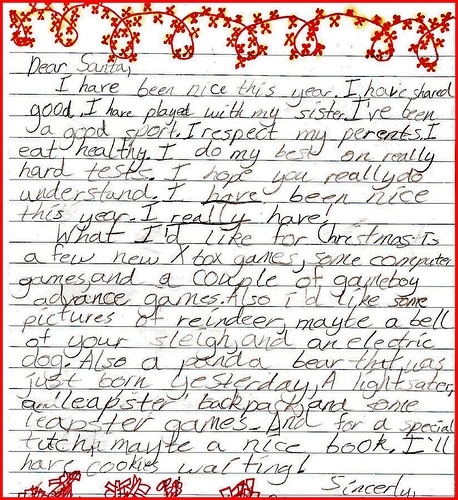 Dear Santa,
I have been nice this year. I have shared
good. I have played with my sister. I've been
a good sport. I respect my perents. I
eat healthy. I do my best on really
hard tests. I hope you really do
understand. I have been nice
this year. I really have!
What I'd like for Christmas is
a few new Xbox games, some computer
games, and a couple of gameboy
advance games. Also i'd like some
pictures of reindeer, mayte a bell
of your sleigh, and an electric
dog. Also a panda bear that was
just born yesterday, A lightsater,
and leapster backpack, and some
leapster games. And for a special
tutch, mayte a nice book. I'll
have cookies waiting!
Sincerly,